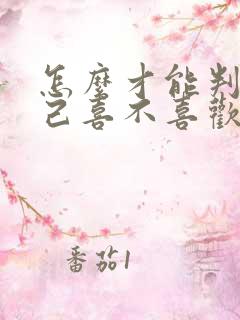 怎麼才能判
己喜不喜歡
番茄1